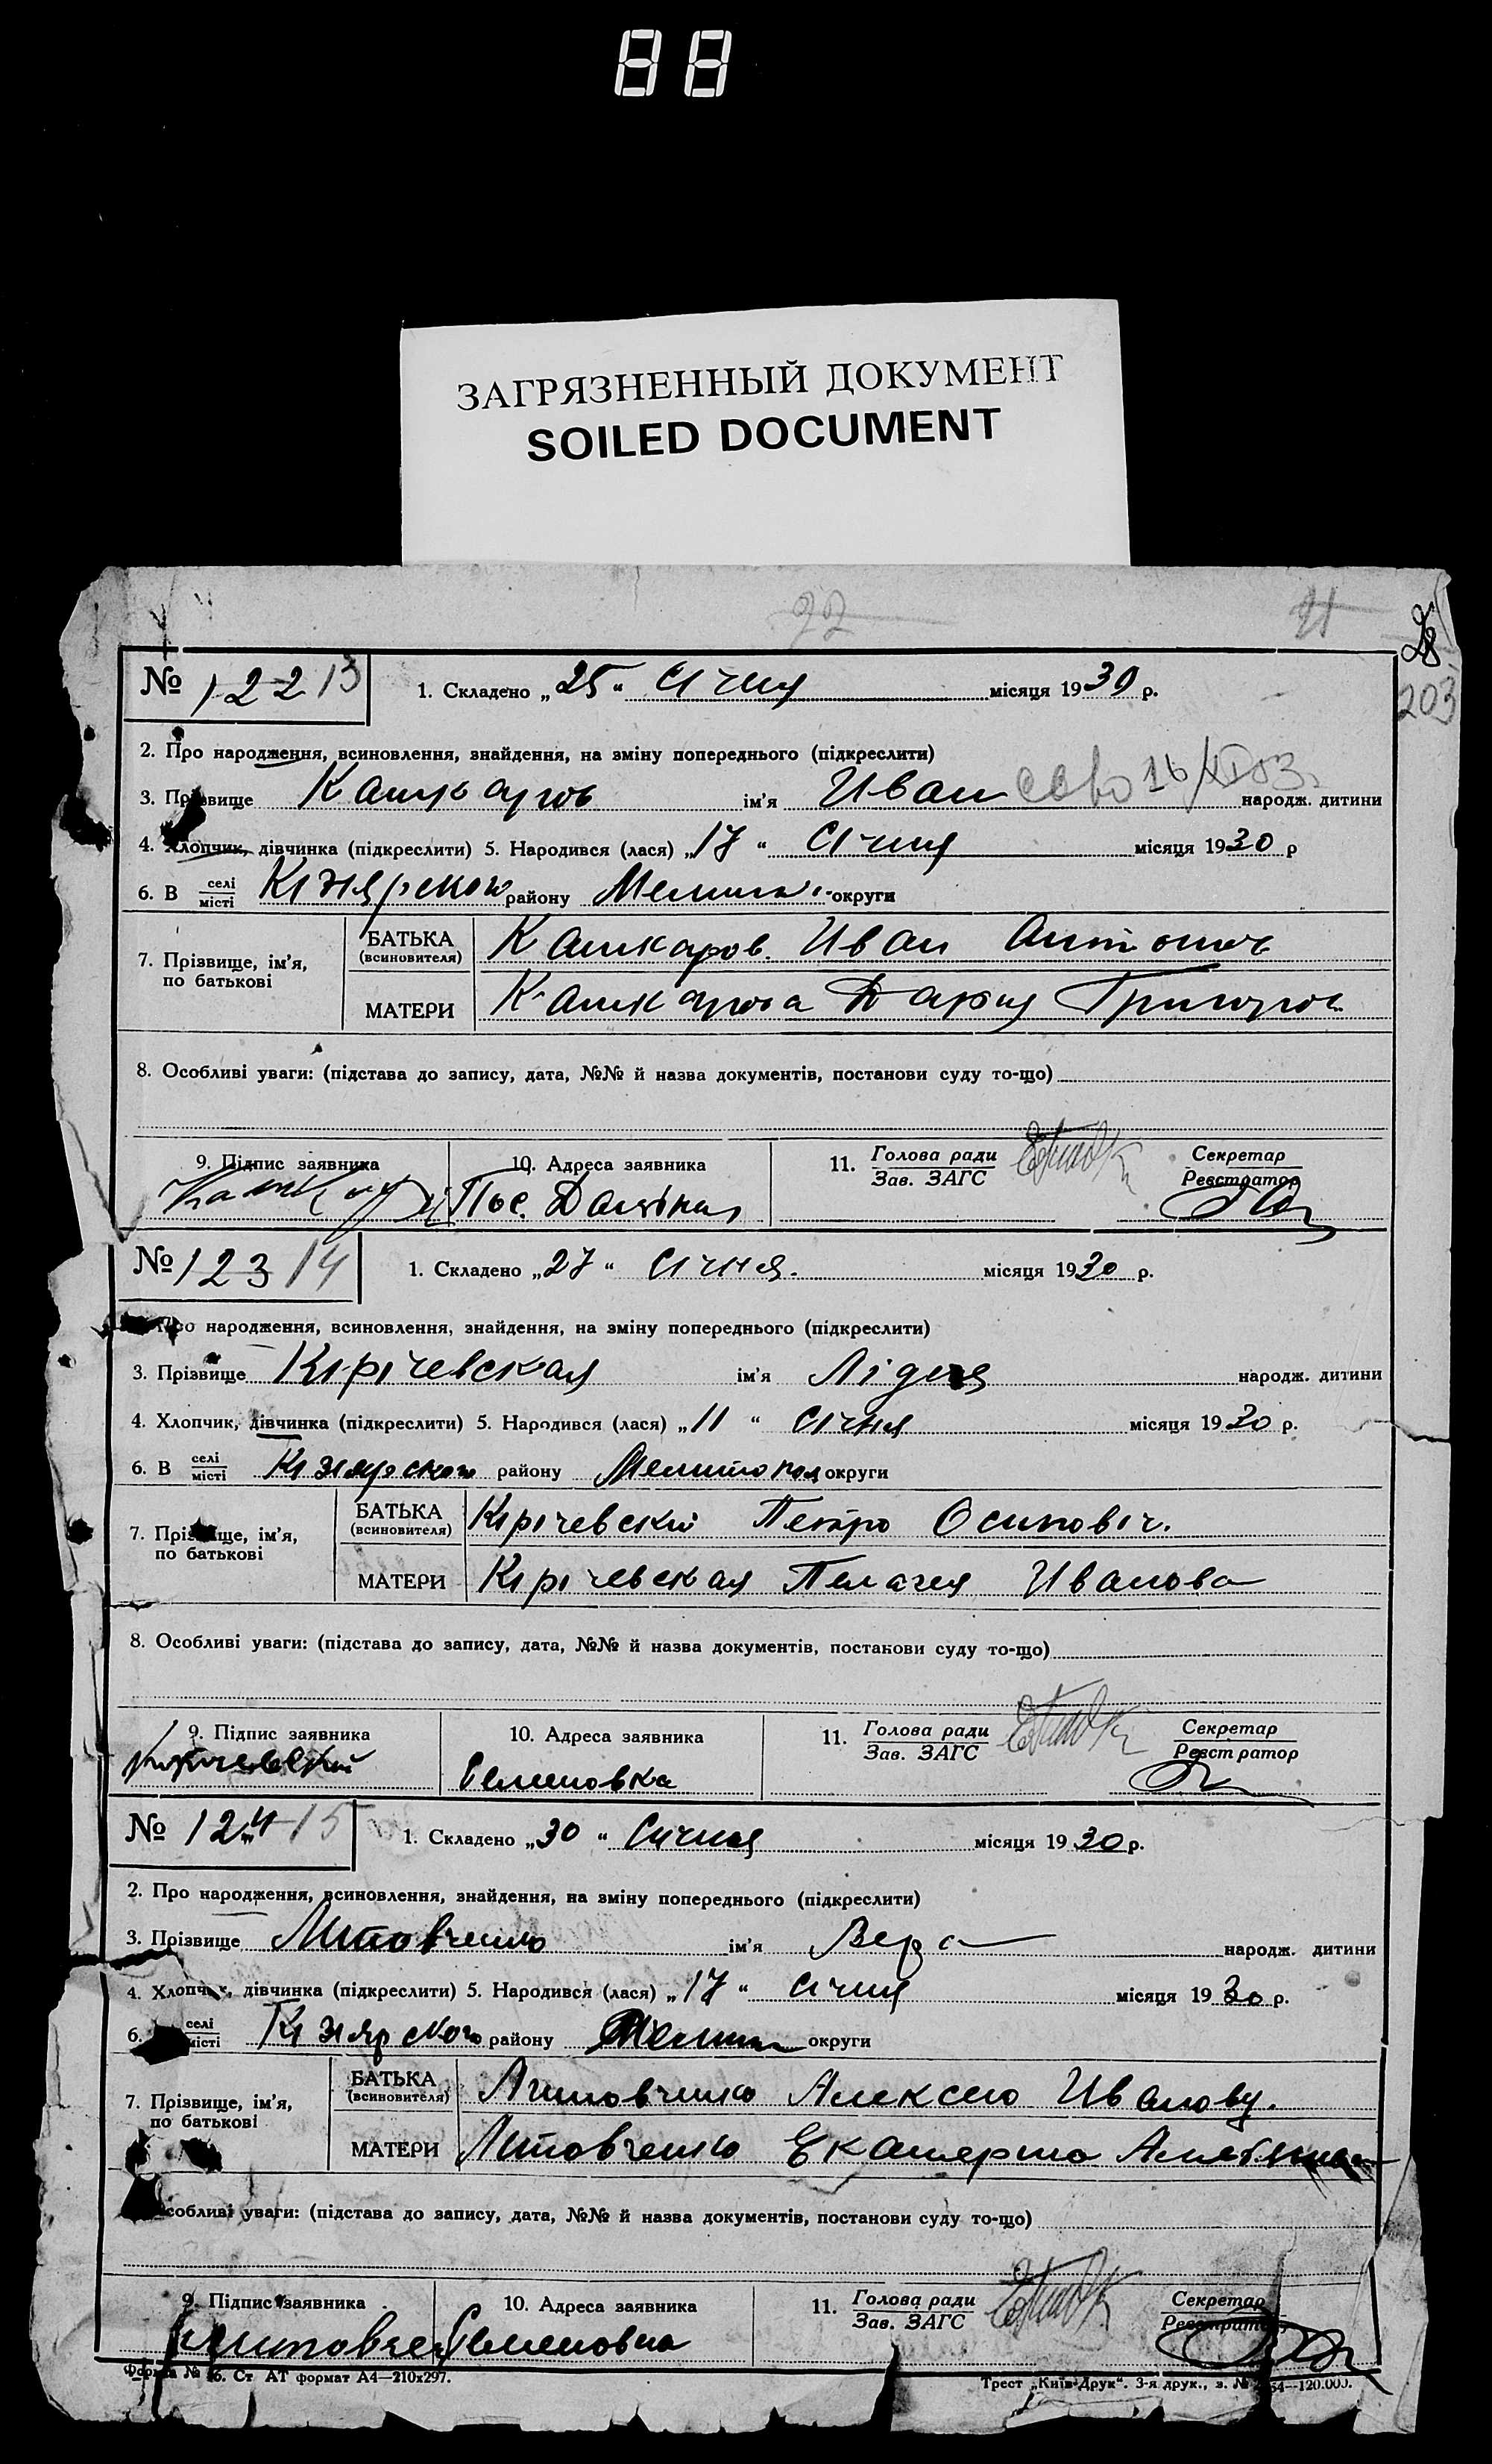 88
ЗАГРЯЗНЕННЫЙ ДОКУМЕНТ
SOILED DOCUMENT
22 21
203
№ 122 13 1. Складено „25“ Січня місяця 1930 р.
2. Про народження, всиновлення, знайдення, на зміну попереднього (підкреслити)
3. Прізвище Кашкаров ім'я Иван народж. дитини
4. Хлопчик, дівчинка (підкреслити) 5. Народився (лася) „17“ Січня місяця 1930 р
6. В селі місті Кізіярского району Мелит. округи
7. Прізвище, ім'я, по батькові
БАТЬКА (всиновителя) Кашкаров Иван Антонов
МАТЕРИ Кашкарова Дария Григоров
8. Особливі уваги: (підстава до запису, дата, №№ й назва документів, постанови суду то-що)
9. Підпис заявника 10. Адреса заявника 11. Голова ради Зав. ЗАГС Секретар Реєстратор
Пос.
№ 123 14 1. Складено „27“ Січня. місяця 1930 р.
Про народження, всиновлення, знайдення, на зміну попереднього (підкреслити)
3. Прізвище Кірічевская ім'я Лідия народж. дитини
4. Хлопчик, дівчинка (підкреслити) 5. Народився (лася) „11“ Січня місяця 1930 р.
6. В селі місті Кізіярского району Мелитопол округи
7. Прізвище, ім'я, по батькові
БАТЬКА (всиновителя) Кірічевский Петро Осиповіч.
МАТЕРИ Кірічевская Пелагея Иванова
8. Особливі уваги: (підстава до запису, дата, №№ й назва документів, постанови суду то-що)
9. Підпис заявника 10. Адреса заявника 11. Голова ради Зав. ЗАГС Секретар Реєстратор
Киричевский Семеновка
№ 124 15 1. Складено „30“ Січня місяця 1930 р.
2. Про народження, всиновлення, знайдення, на зміну попереднього (підкреслити)
3. Прізвище Литовченко ім'я Вера народж. дитини
4. Хлопчик, дівчинка (підкреслити) 5. Народився (лася) „17“ Січня місяця 1930 р.
6. селі місті Кізіярского району Мелит округи
7. Прізвище, ім'я, по батькові
БАТЬКА (всиновителя) Литовченко Алексею Иванову.
МАТЕРИ Литовченко Екатерина
Особливі уваги: (підстава до запису, дата, №№ й назва документів, постанови суду то-що)
9. Підпис заявника 10. Адреса заявника 11. Голова ради Зав. ЗАГС Секретар Реєстратор
Литовчен Семеновка
Форма № 16. Ст АТ формат А4—210х297. Трест „Київ-Друк“. 3-я друк., з. № 54—120.000.